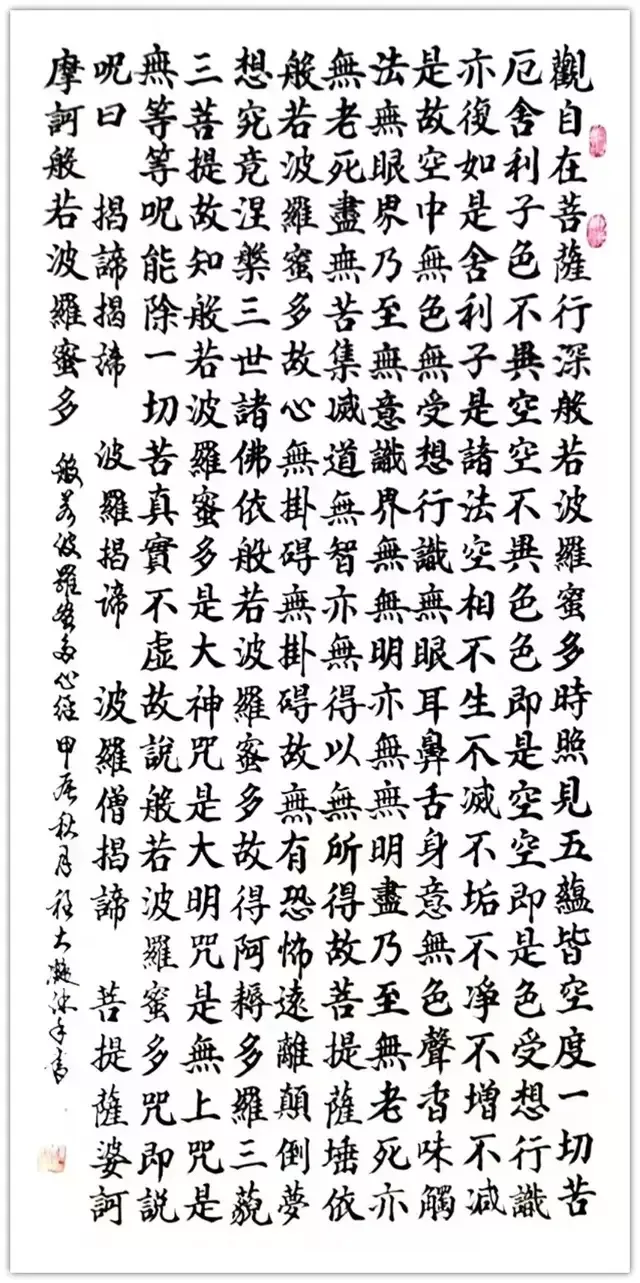 觀自在菩薩行深般若波羅蜜多時照見五蘊皆空度一切苦
厄舍利子色不異空空不異色色即是空空即是色受想行識
亦復如是舍利子是諸法空相不生不滅不垢不淨不增不減
是故空中無色無受想行識無眼耳鼻舌身意無色聲香味觸
法無眼界乃至無意識界無無明亦無無明盡乃至無老死亦
無老死盡無苦集滅道無智亦無得以無所得故菩提薩埵依
般若波羅蜜多故心無掛碍無掛碍故無有恐怖遠離顛倒夢
想究竟涅槃三世諸佛依般若波羅蜜多故得阿耨多羅三藐
三菩提故知般若波羅蜜多是大神咒是大明咒是無上咒是
無等等呪能除一切苦真實不虛故說般若波羅蜜多咒即說
呪曰 揭諦揭諦 波羅揭諦 波羅僧揭諦 菩提薩婆訶
摩訶般若波羅蜜多
般若波羅蜜多心經 甲辰秋月